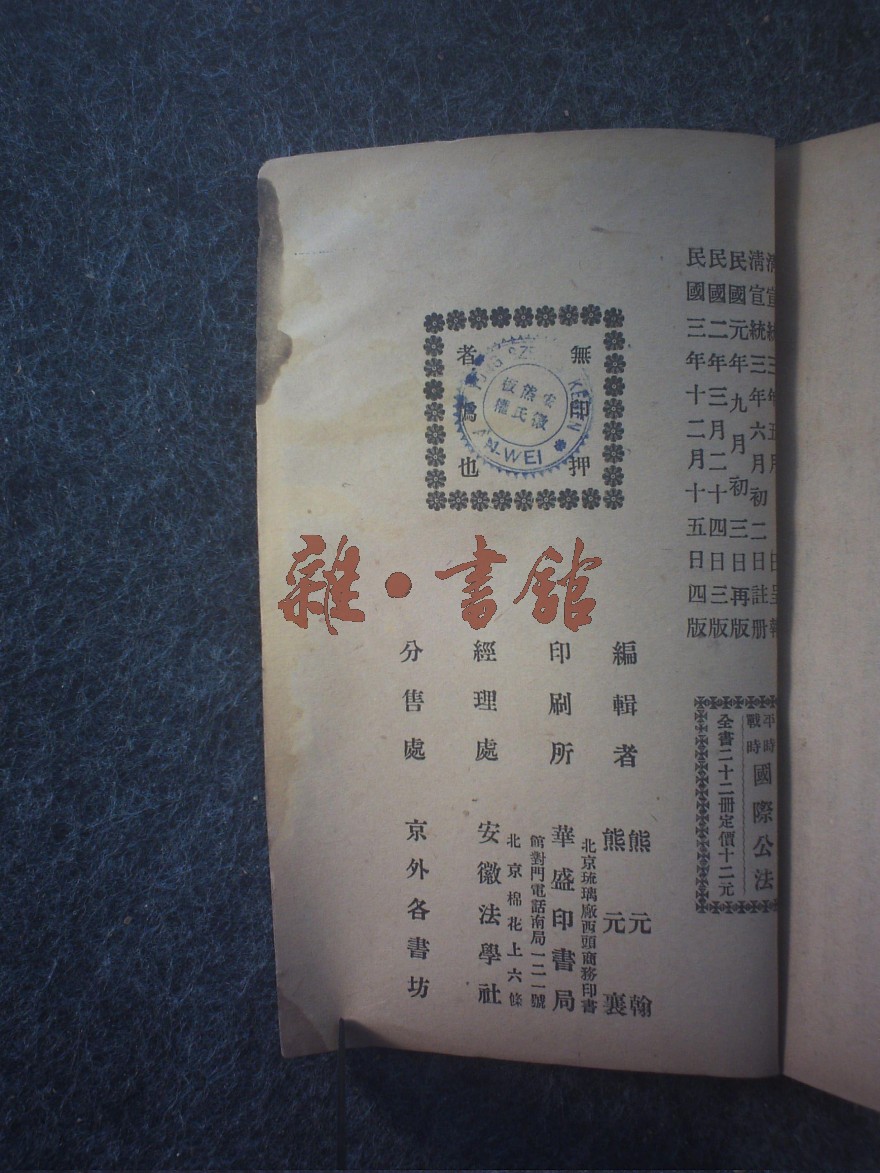 清宣統三年五月 日呈報
清宣統三年六月初二日註册
民國元年九月初三日再版
民國二年三月二十四日三版
民國三年十二月十五日四版
平時
戰時
國際公法
全書二十二冊定價十二元
無 押
者爲也
AN-WEI
雜·書館
編輯者
熊元翰
熊元襄
印刷所
北京琉璃廠西頭商務印書
華盛印書局
館對門電話南局一二一號
經理處
北京棉花上六條
安徽法學社
分售處
京外各書坊